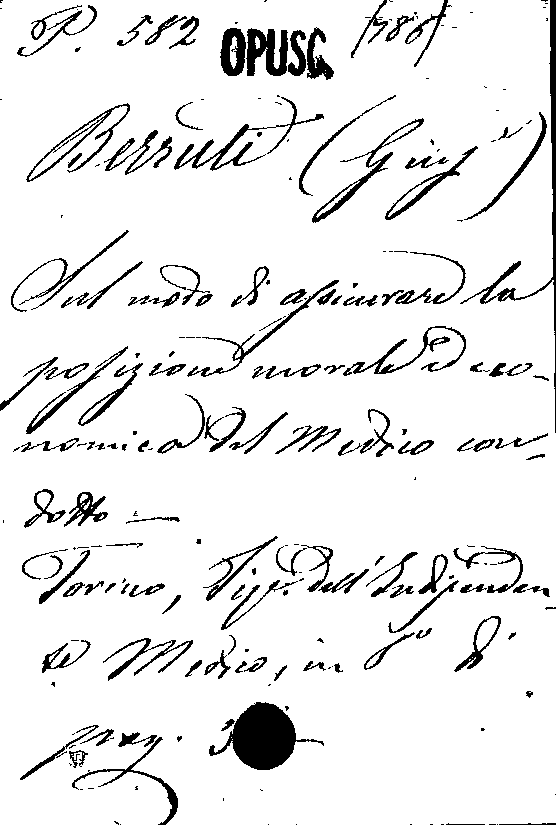 P. 582 OPUSC. (786)
Berruti (Giuṣ.ᵉ)
Sul modo di assicurare la
posizione morale ed eco-
nomica del Medico con-
dotto —
Torino, Tip. dell'Indipenden
te Medico, in 8º di
pag. 3 —